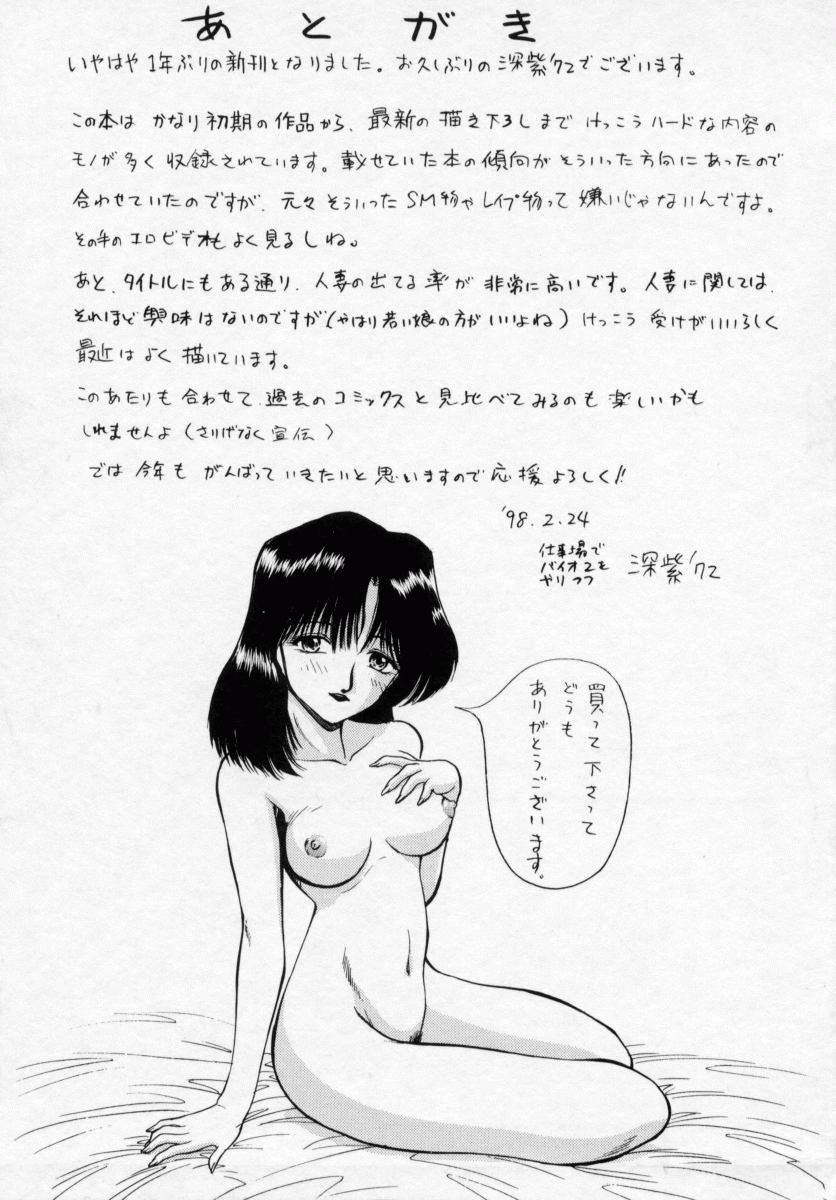 あとがき
いやはや1年ぶりの新刊となりました。お久しぶりの深紫'クニでございます。
この本は かなり初期の作品から、最新の描き下ろしまで けっこうハードな内容の
モノが多く収録されています。載せていた本の傾向がそういった方向にあったので
合わせていたのですが、元々そういったSM物やレイプ物って嫌いじゃないんですよ。
その手のエロビデオもよく見るしね。
あと、タイトルにもある通り、人妻の出てる率が非常に高いです。人妻に関しては、
それほど興味はないのですが(やはり若い娘の方がいいよね)けっこう受けがいいらしく
最近はよく描いています。
このあたりも合わせて、過去のコミックスと見比べてみるのも楽しいかも
しれませんよ(さりげなく宣伝)
では今年もがんばっていきたいと思いますので応援よろしく!!
'98.2.24
仕事場で
バイオ2を
やりつつ
深紫'クニ
買って下さって
どうも
ありがとうございます。